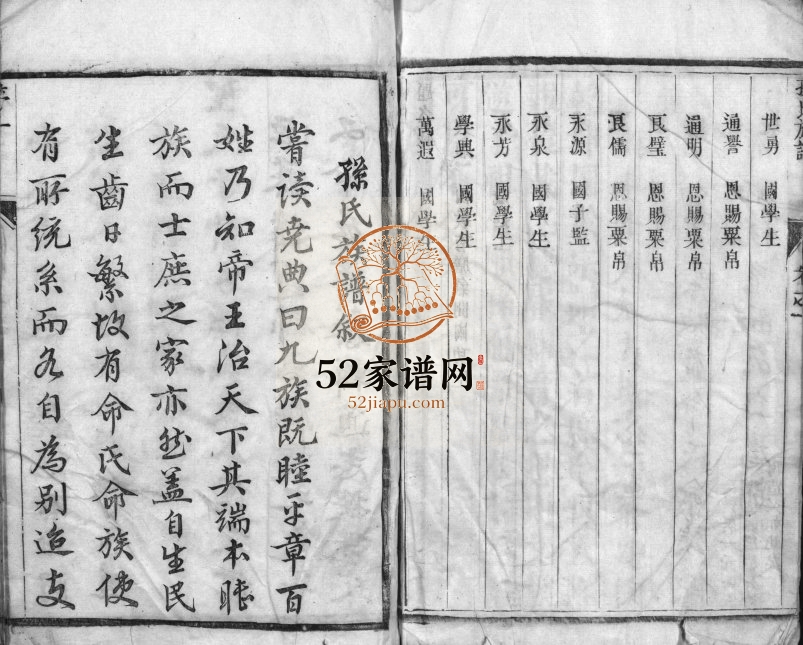 世勇 國學生
通譽 恩賜粟帛
通明 恩賜粟帛
良璧 恩賜粟帛
良儒 恩賜粟帛
永源 國子監
永泉 國學生
永芳 國學生
學典 國學生
萬遐 國學生
孫氏族譜敘
嘗读尭典曰九族既睦平章百
姓乃知帝王治天下其端本睦
族而士庶之家亦然盖自生民
生齒日繁故有命氏命族使
有所统系而各自為别迨支
52家谱网
52jiapu.com